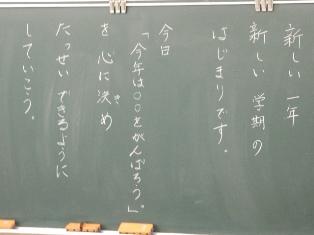 新しい 一年
新しい 学期の
はじまりです。
今日
「今年は○○をがんばろう。」
を 心に決め
き
たっせい できるように
していこう。